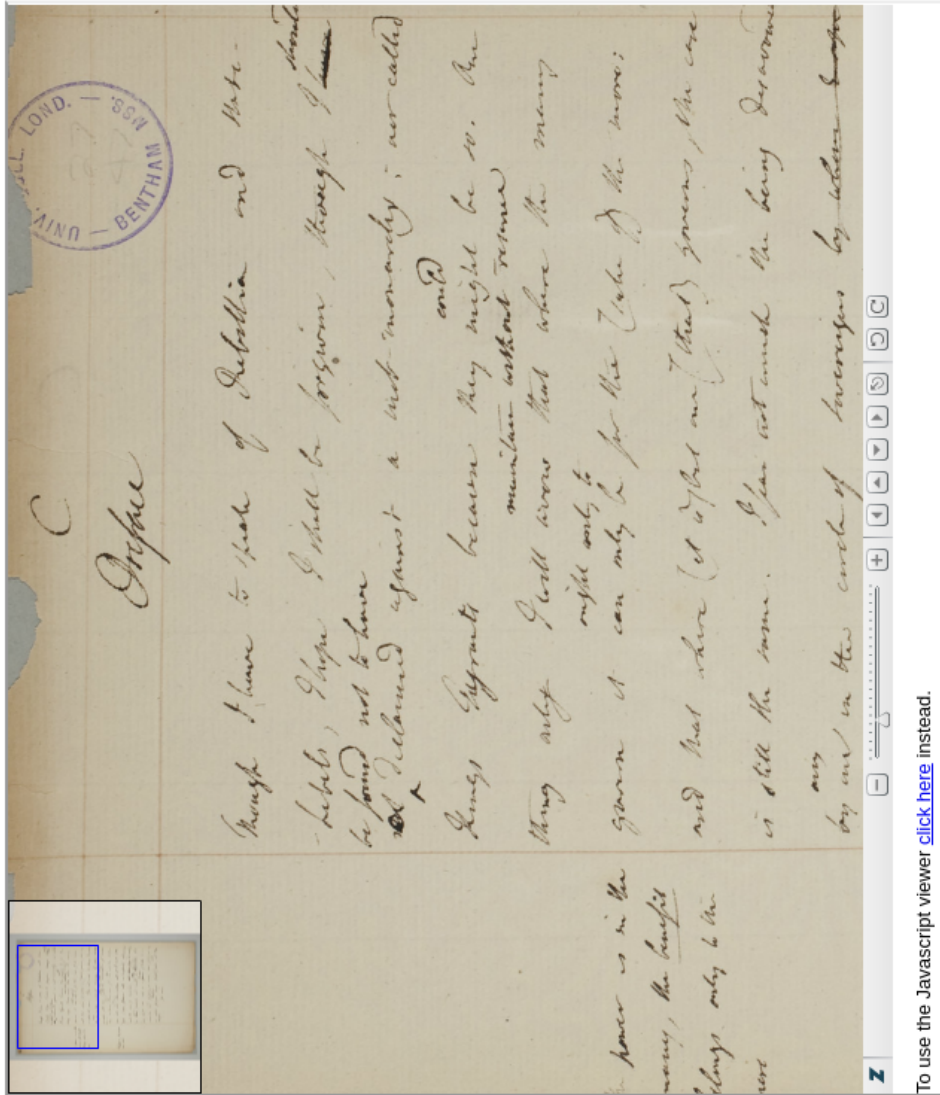 UNIV. COLL. LOND. — MSS. — BENTHAM —
C
Preface
Though I have to speak of Rebellion and these
libels, I hope I shall be forgiven, though I should
be found not to have
declaimed against a monarchy; nor called
could
Kings Tyrants because they might be so. One
maintain without reserve
thing only I will avow that where the many
ought only to
govern it can only be for the sake of the more:
and that where (let it be but one) that governs, the case
is still the same. I fear not much the being disavowed
any
by one in the circle of Sovereigns by whom
power is in the
many, the benefit
belongs only to the
To use the Javascript viewer click here instead.